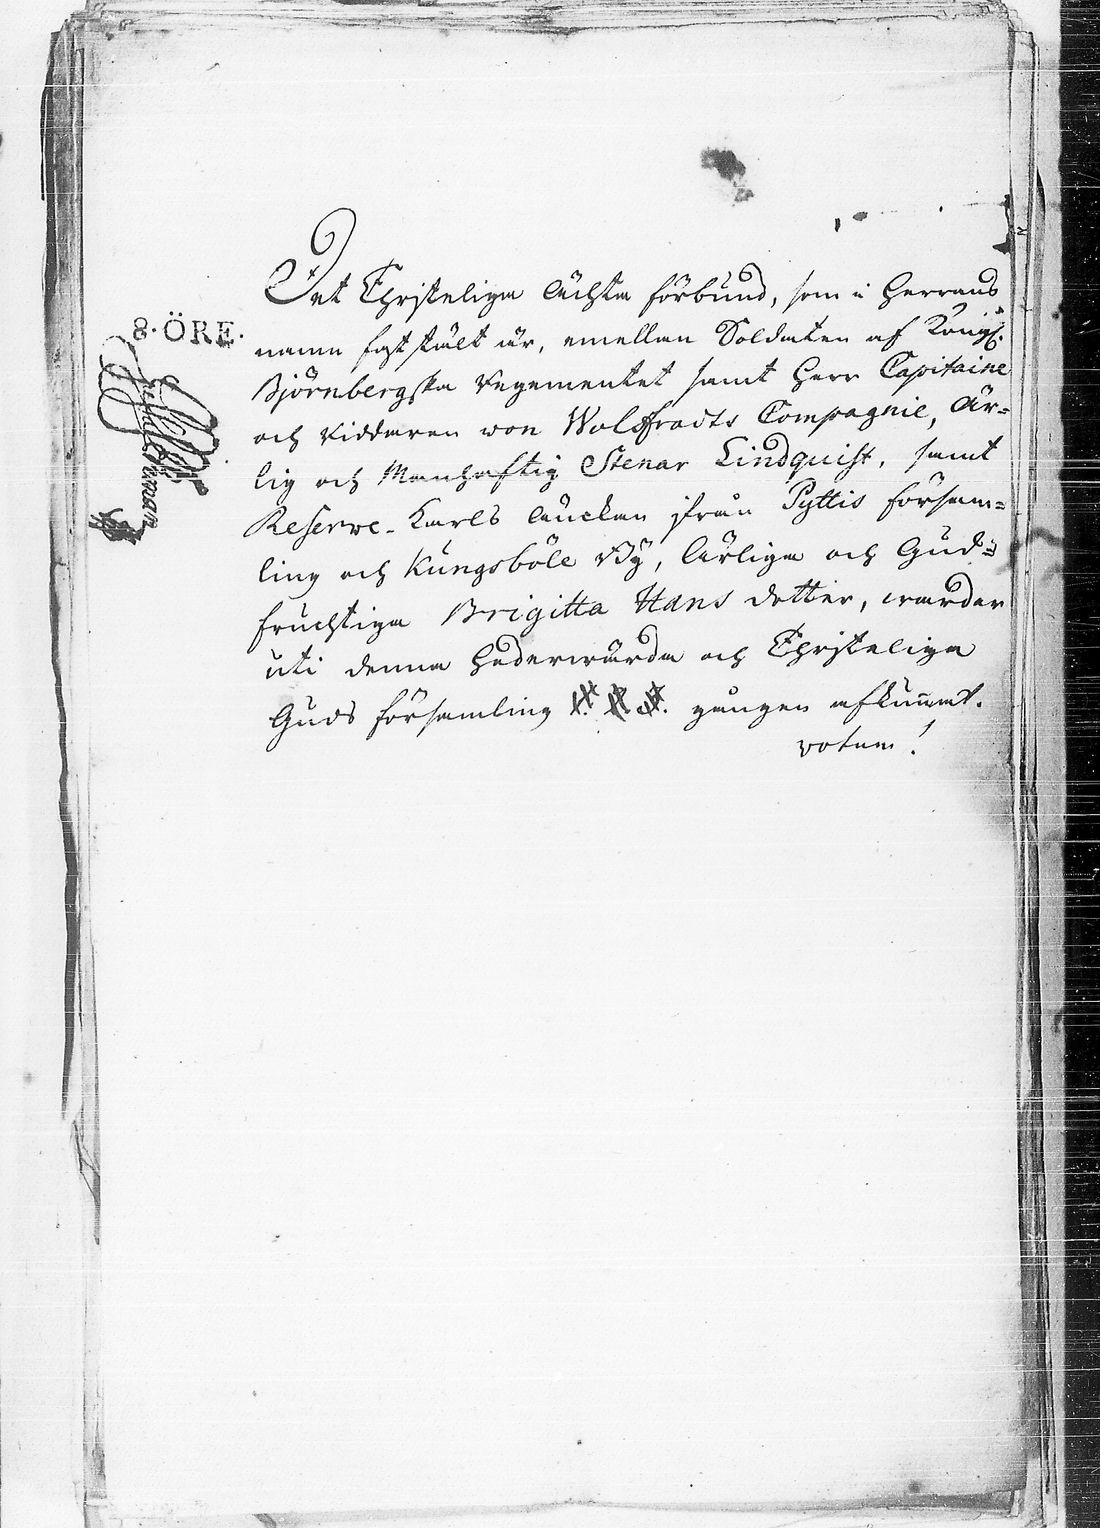 Det Christeliga Ächta förbund, som i Herrans
namn faststält är, emellan Soldaten af Kongl.
Björnbergska Regementet samt Herr Capitaine
och Riddaren von Wolffradts Compagnie, Är-
lig och Manhaftig Stenar Lindquist, samt
Reserve-Karls Änckan ifrån Pyttis försam-
ling och Kungsböle By, Ärliga och Gud-
fruchtiga Brigitta Hans dotter, warder
uti denna Hedervärda och Christeliga
Guds församling gången afkunnat.
votum!
8. ÖRE.